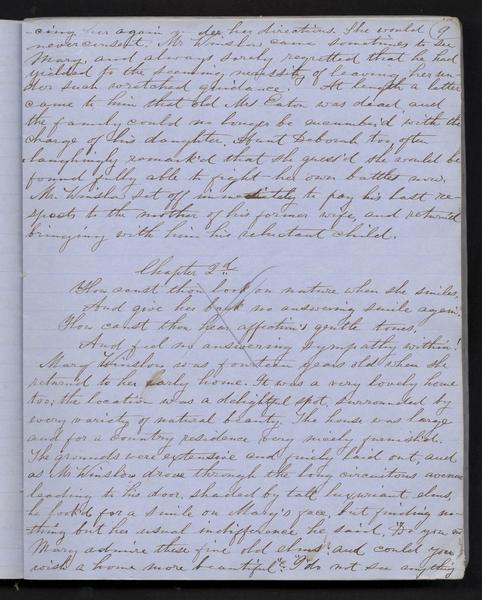 cing her again under her directions. She would 9
never consent. Mr Winslow came sometimes to see
Mary, and always sorely regretted that he had
yielded to the seeming necessity of leaving her un-
der such wretched guidance. At length a letter
came to him that old Mrs Eaton was dead and
the family could no longer be encumber'd with the
charge of his daughter. Aunt Deborah too, often
laughingly remark'd that she guess'd she would be
found fully able to fight her own battles now.
Mr. Winslow set off immediately to pay his last re-
spects to the mother of his former wife, and return'd
bringing with him his reluctant child.
Chapter 2d
How canst thou look on nature when she smiles,
And give her back no answering smile again.
How canst thou hear affection's gentle tones,
And feel no answering sympathy within!
Mary Winslow was fourteen years old when she
returned to her early home. It was a very lovely home
too; the location was a delightful spot, surrounded by
every variety of natural beauty. The house was large
and for a country residence very nicely furnished.
The grounds were extensive and finely laid out, and
as Mr Winslow drove through the long circuitous avenue
leading to his door, shaded by tall luxuriant elms,
he look'd for a smile on Mary's face, but finding no-
thing but her usual indifference he said, "Do you not
Mary admire these fine old elms? and could you
wish a home more beautiful?" "I do not see anything